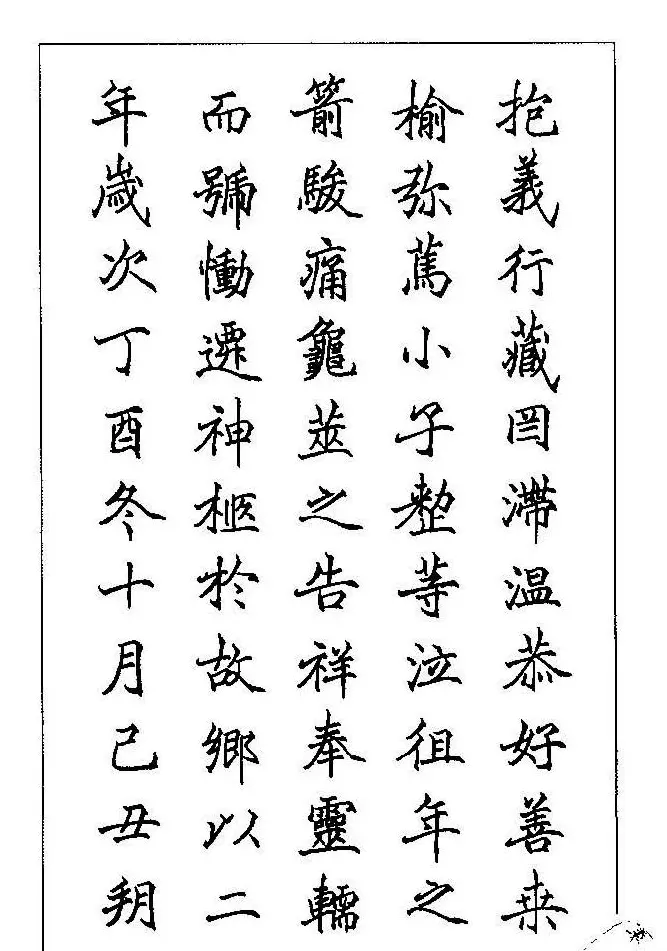 抱義行藏罔滯温恭好善桒
榆弥篤小子整等泣徂年之
箭駿痛龜莁之告祥奉靈轜
而號慟遷神柩於故鄉以二
年歲次丁酉冬十月己丑朔